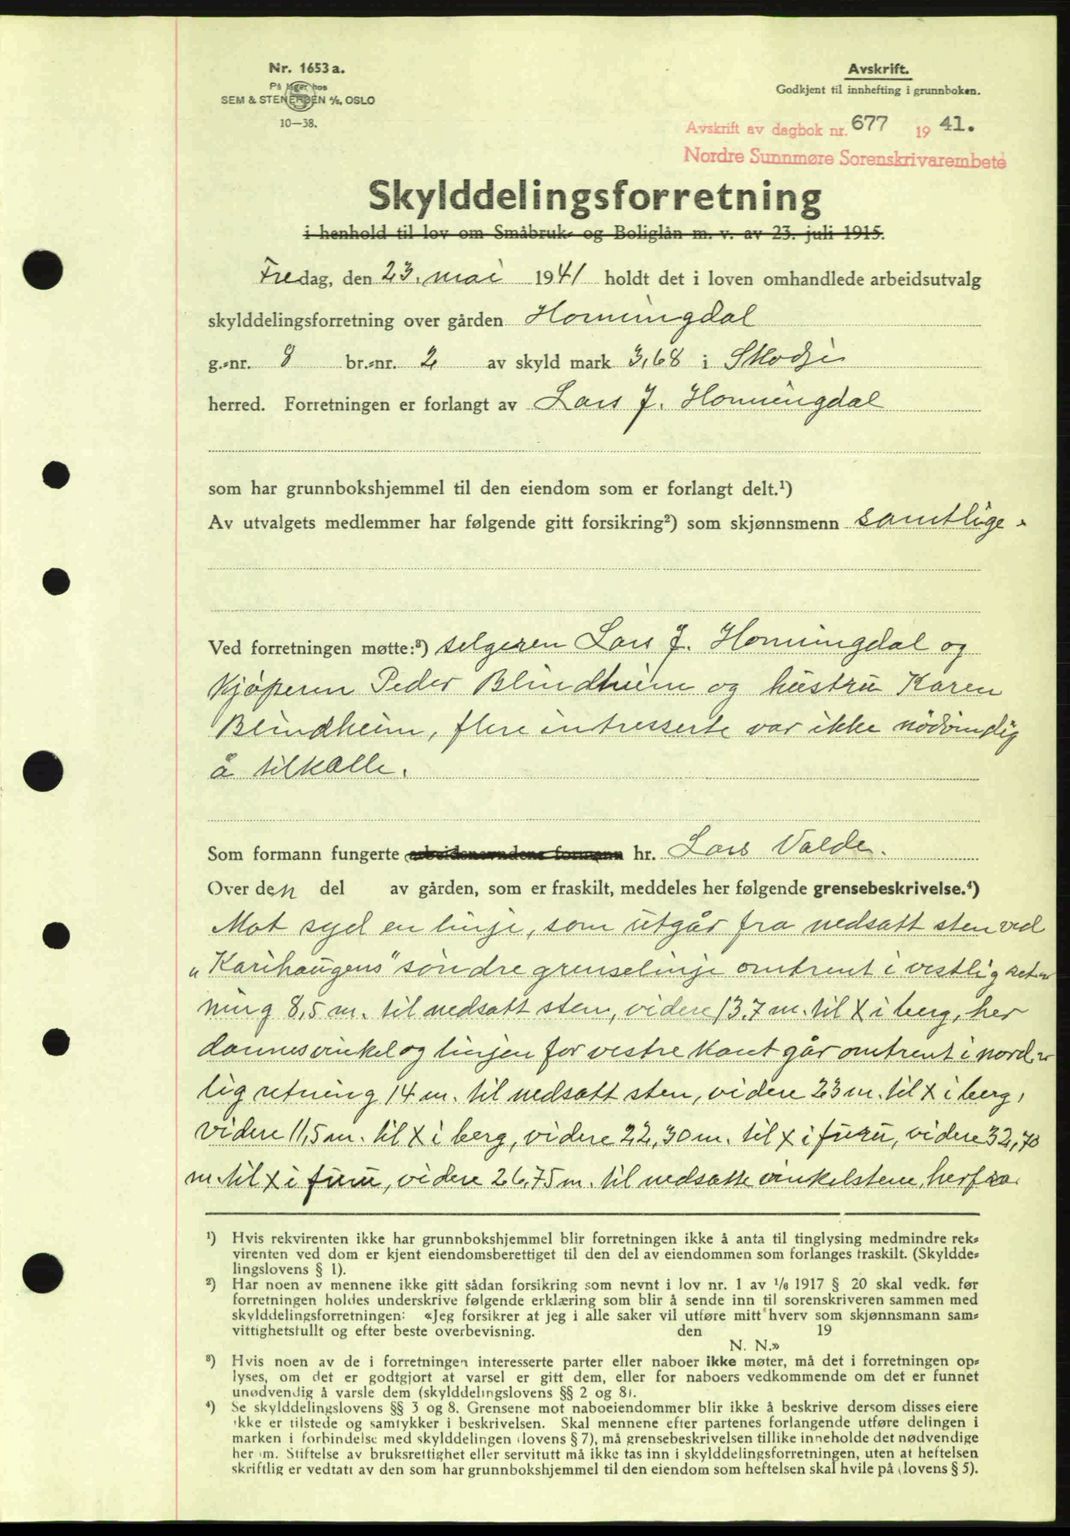 Nr. 1653 a.
På lager hos
SEM & STENERSEN A/S, OSLO
10—38.
Avskrift.
Godkjent til innhefting i grunnboken.
Avskrift av dagbok nr. 677 19 41.
Nordre Sunnmøre Sorenskrivarembete
Skylddelingsforretning
i henhold til lov om Småbruk- og Boliglån m. v. av 23. juli 1915.
Fredag, den 23. mai 1941 holdt det i loven omhandlede arbeidsutvalg
skylddelingsforretning over gården Honningdal
g.-nr. 8 br.-nr. 2 av skyld mark 3,68 i Skodje
herred. Forretningen er forlangt av Lars J. Honningdal
som har grunnbokshjemmel til den eiendom som er forlangt delt.¹)
Av utvalgets medlemmer har følgende gitt forsikring²) som skjønnsmenn samtlige.
Ved forretningen møtte:³) selgeren Lars J. Honningdal og
kjøperen Peder Blindheim og hustru Karen
Blindheim, flere intresserte var ikke nödvendig
å tilkalle.
Som formann fungerte arbeidsnevndens formann hr. Lars Valde.
Over den del av gården, som er fraskilt, meddeles her følgende grensebeskrivelse.⁴)
Mot syd en linje, som utgår fra nedsatt sten ved
„Karihaugens" söndre grenselinje omtrent i vestlig ret-
ning 8,5 m. til nedsatt sten, videre 13,7 m. til X i berg, her
dannes vinkel og linjen for vestre kant går omtrent i nord-
lig retning 14 m. til nedsatt sten, videre 23 m. til X i berg,
videre 11,5 m. til X i berg, videre 22,30 m. til X i furu, videre 32,70
m. til X i furu, videre 26,75 m. til nedsatte vinkelstene, herfra
¹) Hvis rekvirenten ikke har grunnbokshjemmel blir forretningen ikke å anta til tinglysing medmindre rek-
virenten ved dom er kjent eiendomsberettiget til den del av eiendommen som forlanges fraskilt. (Skyldde-
lingslovens § 1).
²) Har noen av mennene ikke gitt sådan forsikring som nevnt i lov nr. 1 av 1/6 1917 § 20 skal vedk. før
forretningen holdes underskrive følgende erklæring som blir å sende inn til sorenskriveren sammen med
skylddelingsforretningen: «Jeg forsikrer at jeg i alle saker vil utføre mitt hverv som skjønnsmann sam-
vittighetsfullt og efter beste overbevisning. den 19
N. N.»
³) Hvis noen av de i forretningen interesserte parter eller naboer ikke møter, må det i forretningen op-
lyses, om det er godtgjort at varsel er gitt dem, eller for naboers vedkommende om det er funnet
unødvendig å varsle dem (skylddelingslovens §§ 2 og 8).
⁴) Se skylddelingslovens §§ 3 og 8. Grensene mot naboeiendommer blir ikke å beskrive dersom disses eiere
ikke er tilstede og samtykker i beskrivelsen. Skal mennene efter partenes forlangende utføre delingen i
marken i forbindelse med skylddelingen (lovens § 7), må grensebeskrivelsen tillike inneholde det nødvendige
her om. Stiftelse av bruksrettighet eller servitutt må ikke tas inn i skylddelingsforretningen, uten at heftelsen
skriftlig er vedtatt av den som har grunnbokshjemmel til den eiendom som heftelsen skal hvile på (lovens § 5).